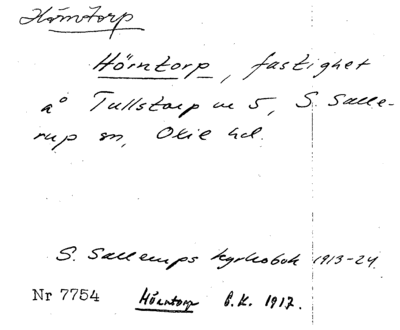 Hörntorp
Hörntorp, fastighet
å Tullstorp nr 5, S. Salle-
rup sn, Oxie hd.
S. Sallerups kyrkobok 1913-24.
Nr 7754 Hörntorp E.K. 1917.